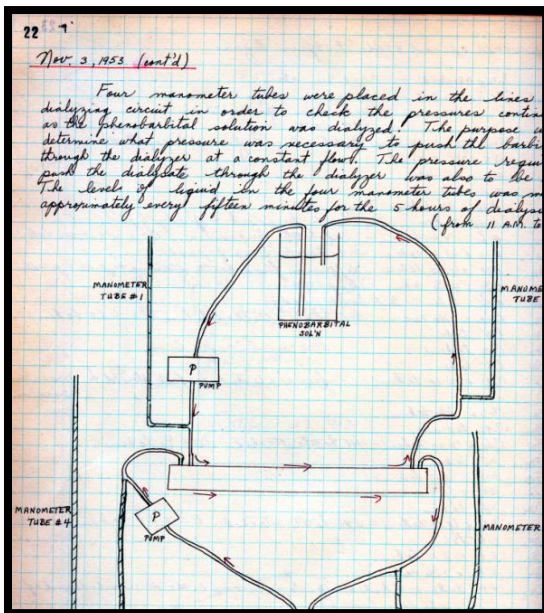 22
Nov. 3, 1953 (cont'd)
Four manometer tubes were placed in the lines
dialyzing circuit in order to check the pressures contin
as the phenobarbital solution was dialyzed. The purpose w
determine what pressure was necessary to push the barbi
through the dialyzer at a constant flow. The pressure requi
push the dialysate through the dialyzer was also to be
The levels of liquid in the four manometer tubes was m
approximately every fifteen minutes for the 5 hours of dialysi
(from 11 A.M. to
MANOMETER
TUBE #1
PHENOBARBITAL
SOL'N
MANOME
TUBE
P
PUMP
MANOMETER
TUBE #4
P
PUMP
MANOMETER